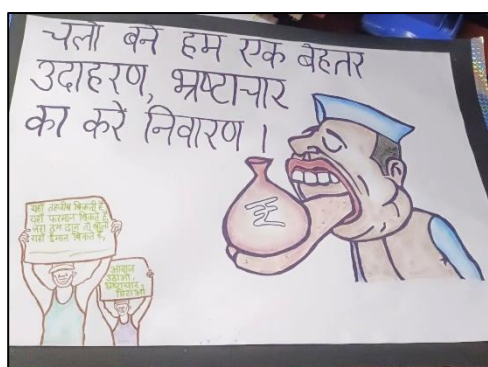 चलो बने हम एक बेहतर
उदाहरण, भ्रष्टाचार
का करें निवारण ।
₹
यहाँ तहजीब बिकती है
यहाँ फरमान बिकते हैं
जरा तुम दाम तो बोलो
यहाँ ईमान बिकते हैं,
आवाज
उठाओ,
भ्रष्टाचार
मिटाओ